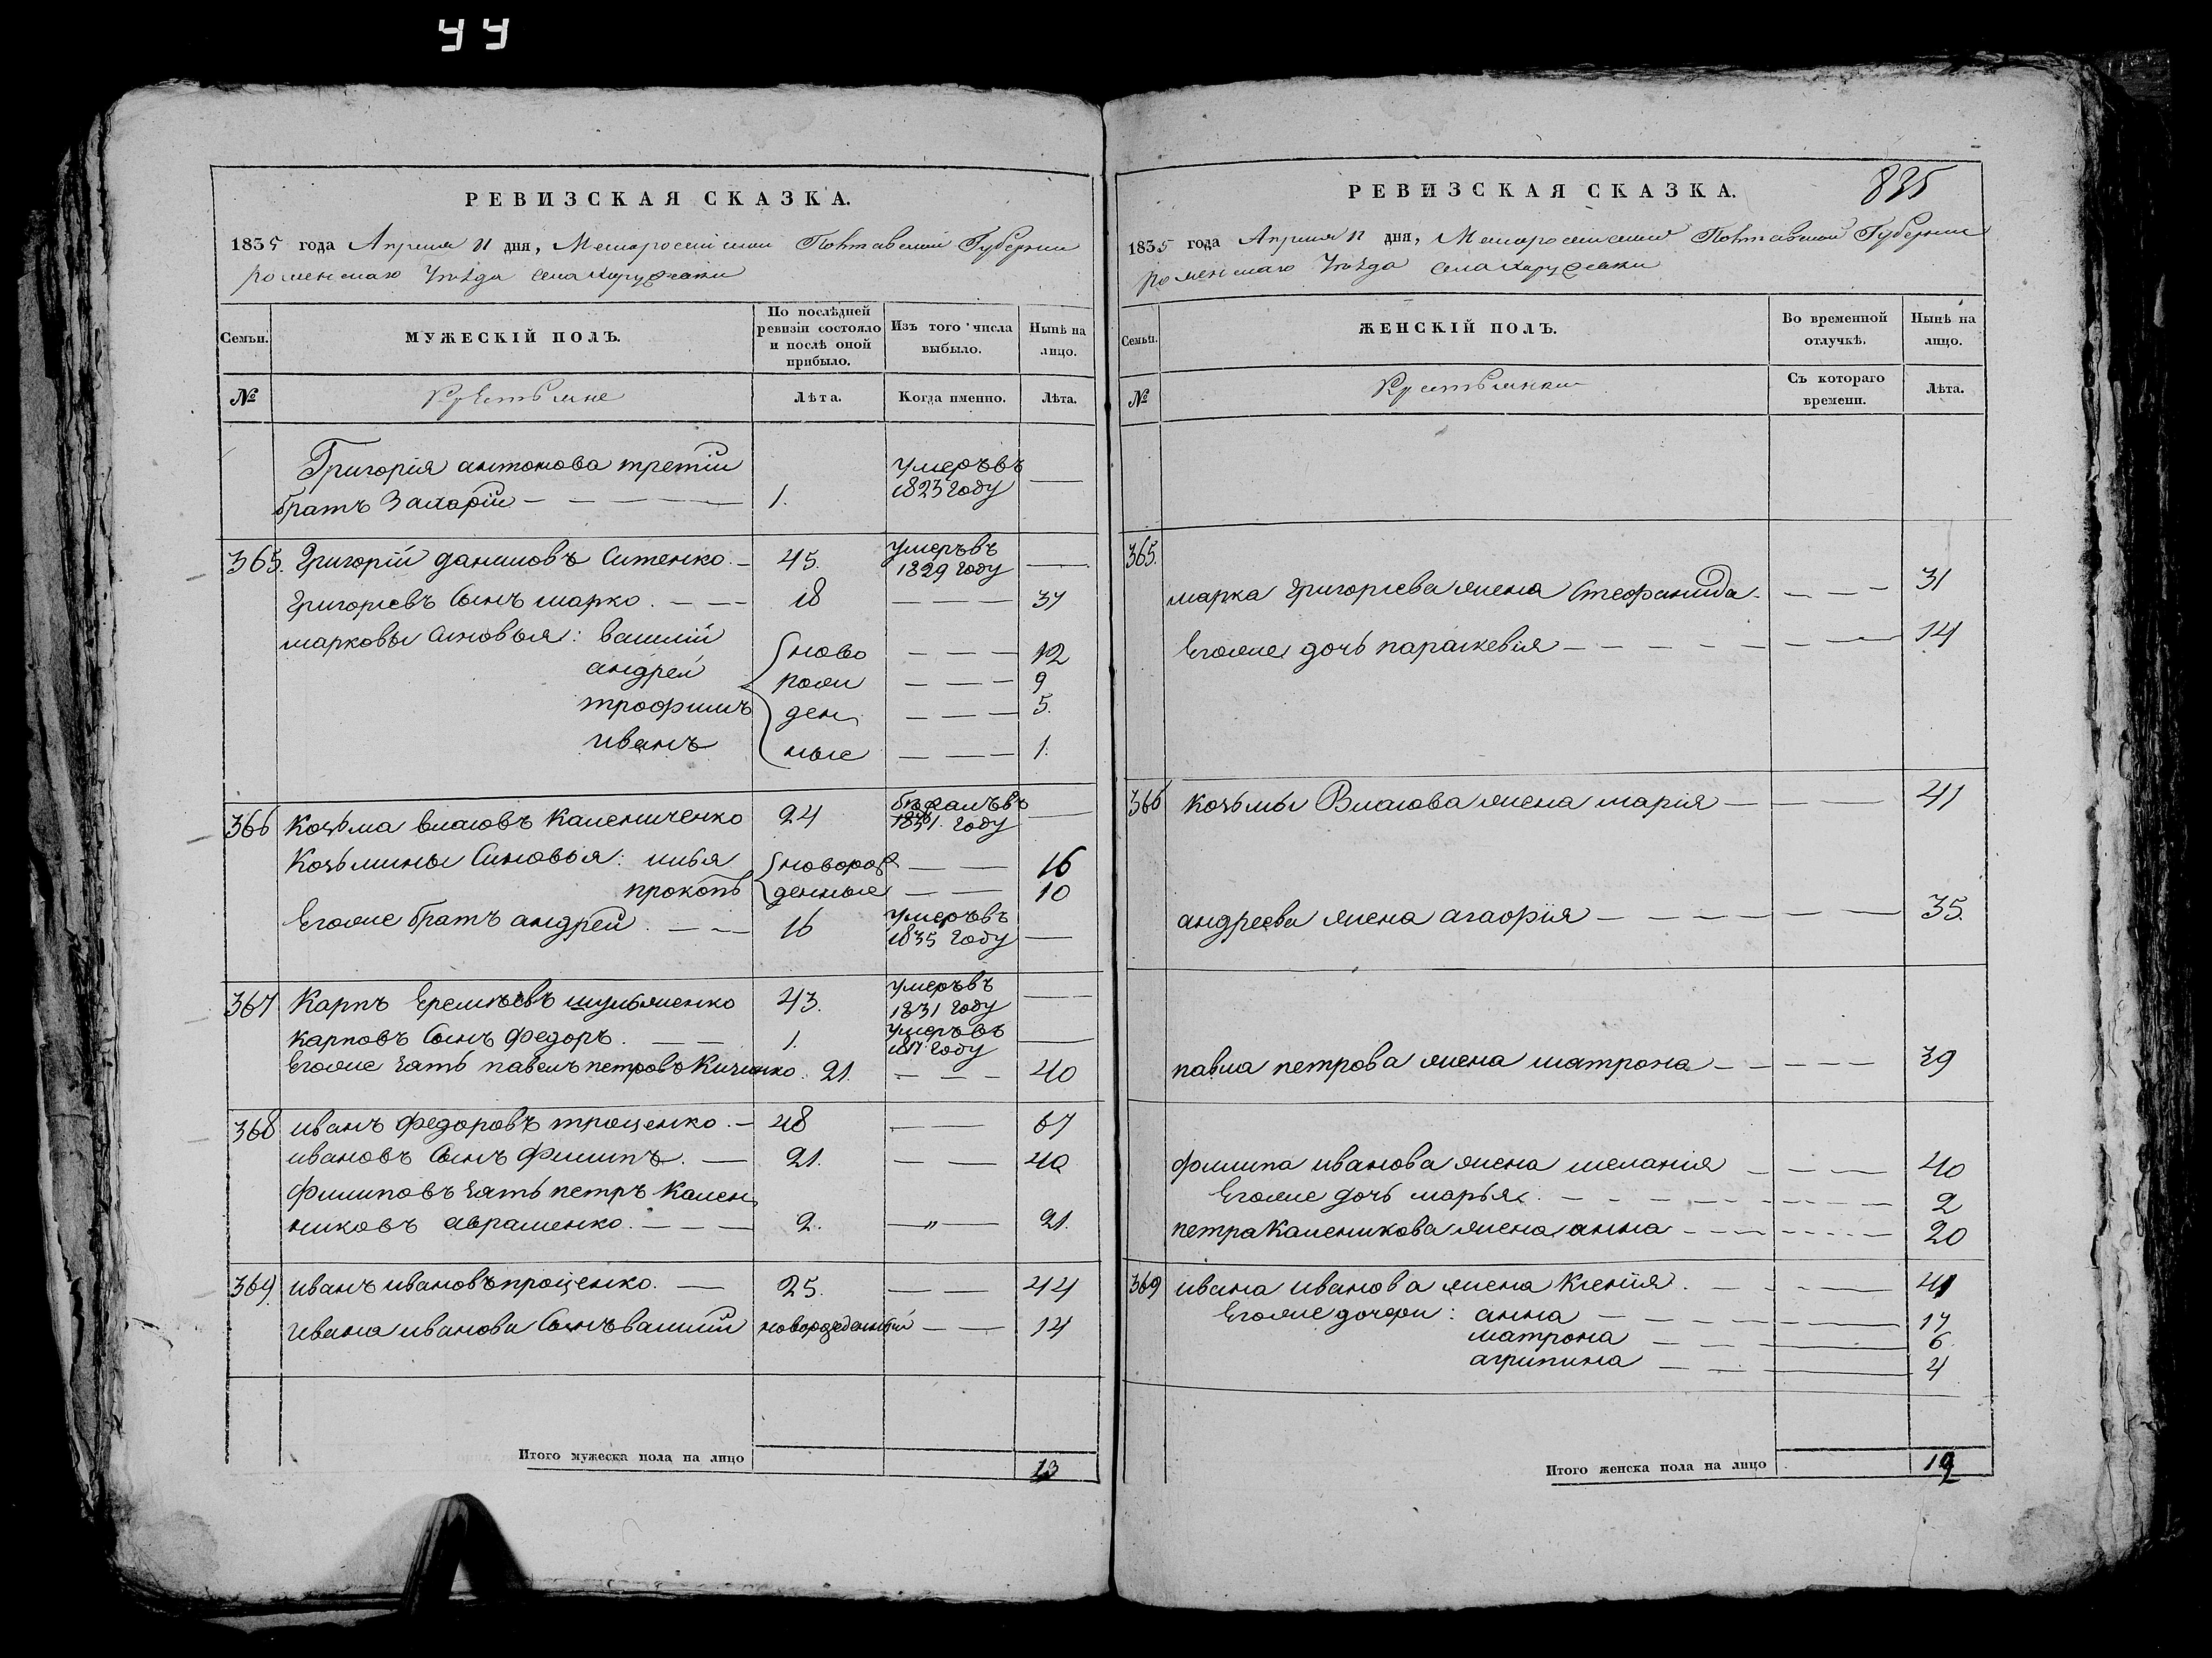 РЕВИЗСКАЯ СКАЗКА.
1835 года Апреля 11 дня, Малороссійской Полтавской Губерніи
роменскаго Уѣзда села
Семьи.
МУЖЕСКІЙ ПОЛЪ.
По послѣдней ревизіи состояло и послѣ оной прибыло.
Изъ того числа выбыло.
Нынѣ на лицо.
№
Крестьяне
Лѣта.
Когда именно.
Лѣта.
Григорія антонова третій умеръ въ
братъ Захарій 1. 1823 году
365. Григорій даниловъ Ситенко 45. умеръ въ 1829 году
Григорьевъ Сынъ марко 18 37
марковы синовья: василій ново 12
андрей рож 9
трофимъ ден 5.
иванъ ные 1.
366 Козьма власовъ Калениченко 24 1831. году
Козьмины Синовья: илья новорож 16
прокопъ денные 10
Егоже братъ андрей 16 умеръ въ 1835 году
367 Карпъ Еремѣевъ 43. умеръ въ 1831 году
карповъ Сынъ федоръ 1. умеръ въ году
Егоже зять павелъ петровъ 21. 40
368 иванъ федоровъ троценко 48 67
ивановъ Сынъ Филипъ 21. 40
филиповъ зять петръ Кален
никовъ авраменко 2. „ 21.
369 иванъ ивановъ проценко 25. 44
ивана иванова Сынъ василий новорожденный 14
Итого мужеска пола на лицо 13
РЕВИЗСКАЯ СКАЗКА. 835
1835 года Апреля 11 дня, Малороссійской Полтавской Губерніи
роменскаго Уѣзда села
Семьи.
ЖЕНСКІЙ ПОЛЪ.
Во временной отлучкѣ.
Нынѣ на лицо.
№
Крестьянки
Съ котораго времени.
Лѣта.
365.
марка Григорьева жена Стефанида 31
Егоже дочь параскевія 14
366 козьмы Власова жена марія 41
андреева жена агафія 35.
павла петрова жена матрона 39
филипа иванова жена меланія 40
Егоже дочь марья 2
петра Каленикова жена анна 20
369 ивана иванова жена Ксенія 41
Егоже дочери: анна 17
матрона 6.
агрипина 4
Итого женска пола на лицо